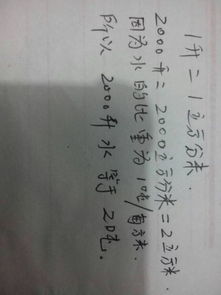 1升=1立方分米.
2000升=2000立方分米=2立方米.
因为水的比重为10吨/每方米.
所以 2000升水等于20吨.